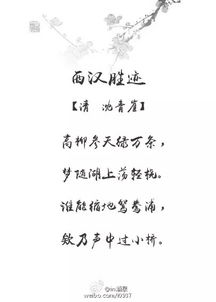 西汉胜迹
【清 沈青崖】
高柳参天绿万条，
梦随湖上荡轻桡。
谁能缩地鸳鸯浦，
欸乃声中过小桥。
weibo.com/t0937